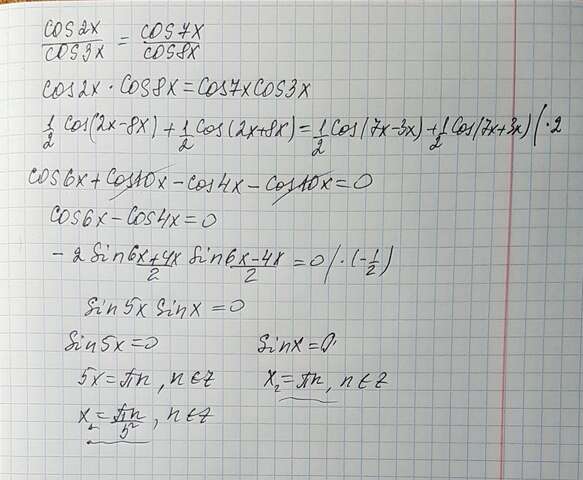 cos2x/cos3x = cos7x/cos8x
cos2x · cos8x = cos7x cos3x
1/2 cos(2x-8x) + 1/2 cos(2x+8x) = 1/2 cos(7x-3x) + 1/2 cos(7x+3x) | · 2
cos6x + cos10x - cos4x - cos10x = 0
cos6x - cos4x = 0
- 2 sin (6x+4x)/2 sin (6x-4x)/2 = 0 | · (-1/2)
sin5x sinx = 0
sin5x = 0 sinx = 0
5x = πn, n∈z x₂ = πn, n∈z
x = πn/5, n∈z